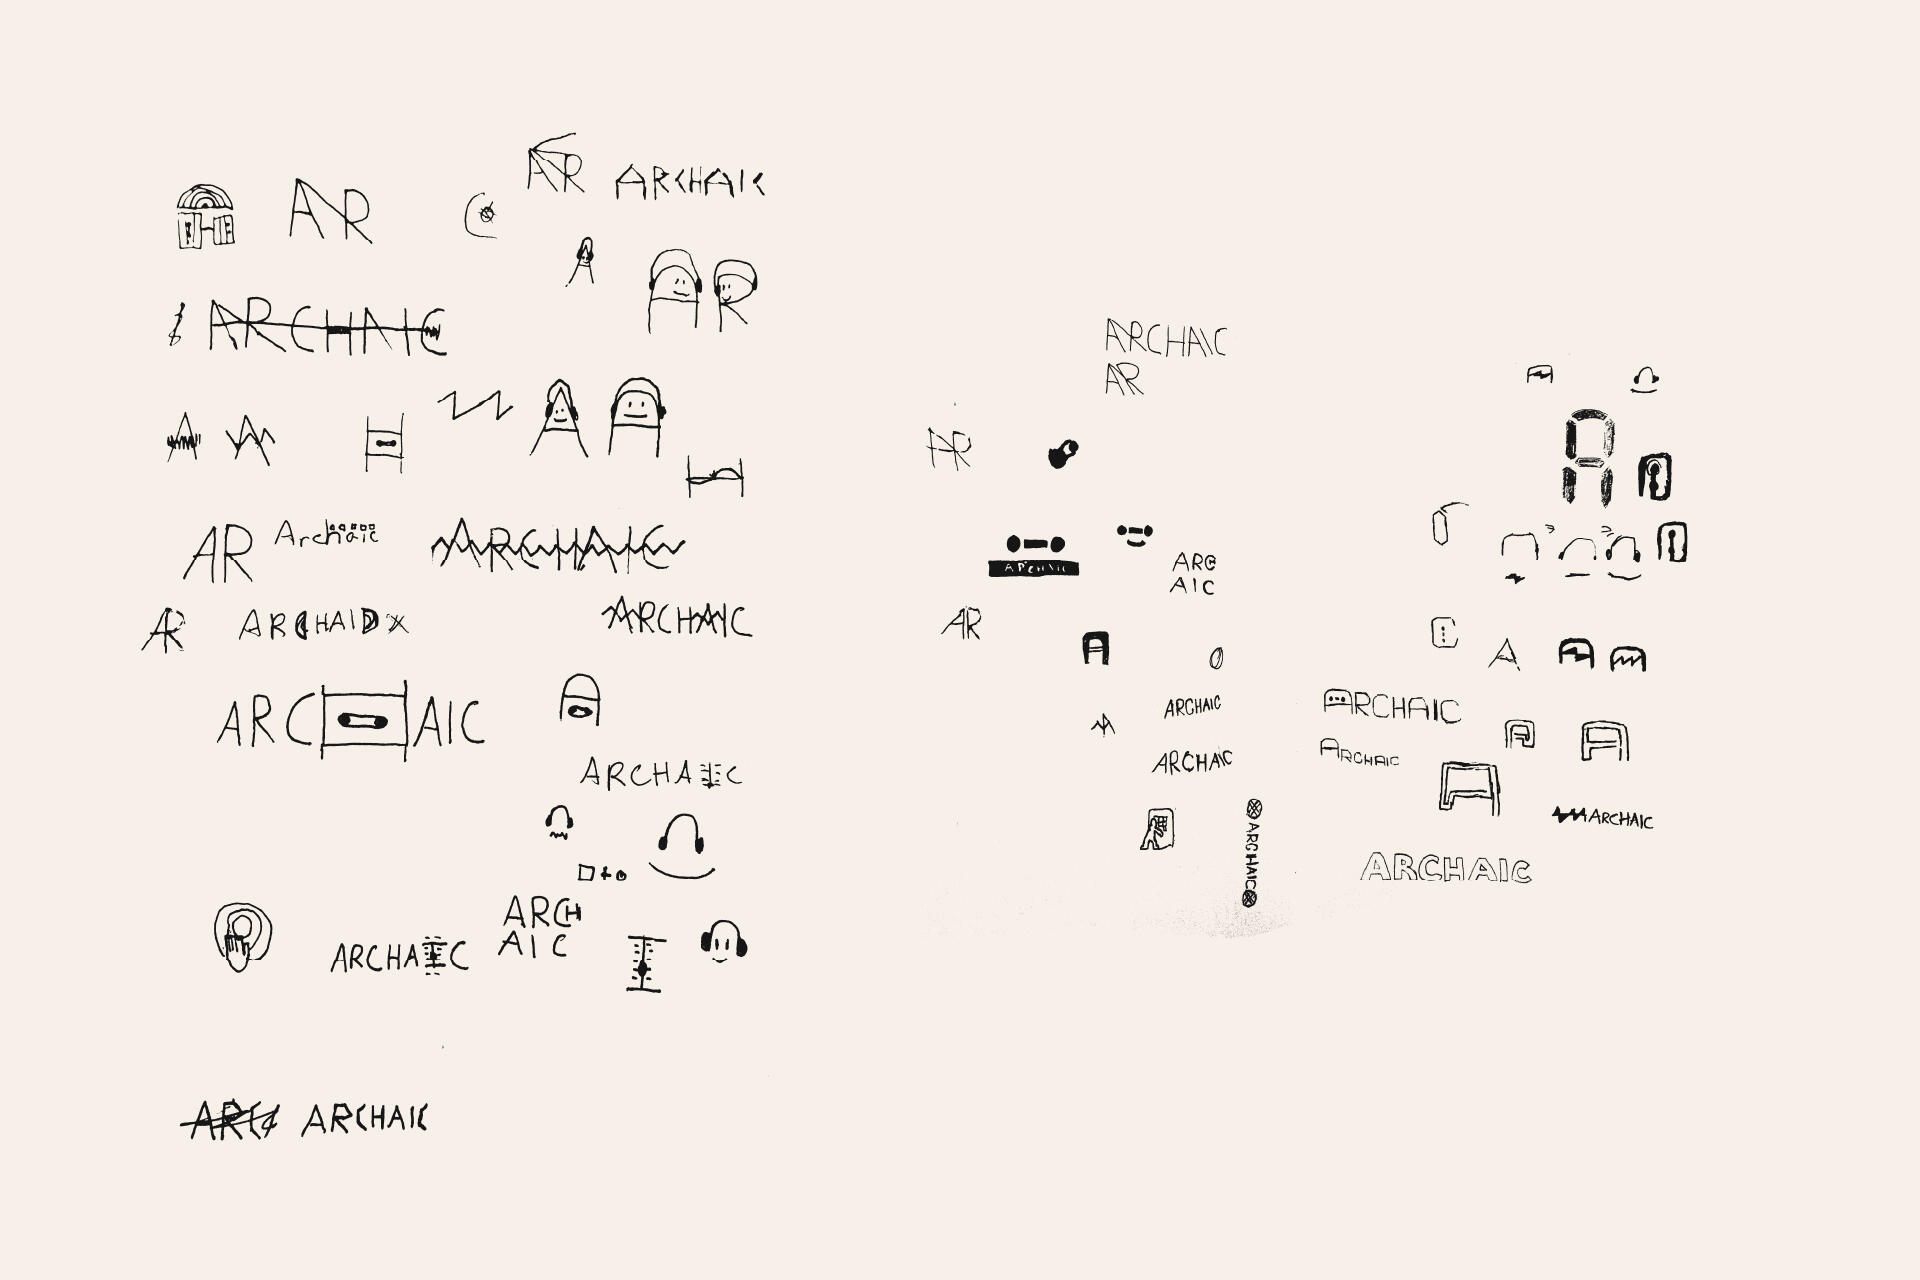 AR
AR
ARCHAIC
A
A R
ARCHAIC
A
A
A
AR
Archaic
ARCHAIC
AR
ARCHAI
ARCHAIC
ARCHAIC
ARCHAIC
ARCHAIC
ARCH
AIC
ARCHAIC
ARCHAIC
AR
AR
ARCHAIC
ARC
AIC
AR
A
ARCHAIC
ARCHAIC
ARCHAIC
A
A
ARCHAIC
ARCHAIC
A
A
ARCHAIC
ARCHAIC